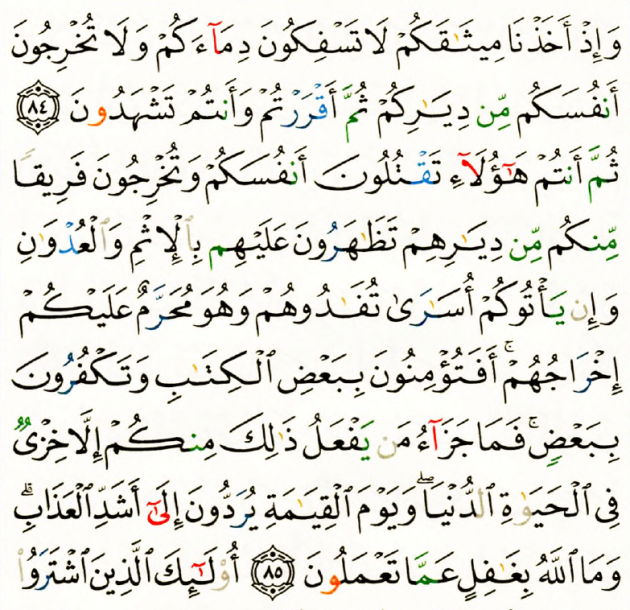 وَإِذْ أَخَذْنَا مِيثَـٰقَكُمْ لَا تَسْفِكُونَ دِمَآءَكُمْ وَلَا تُخْرِجُونَ
أَنفُسَكُم مِّن دِيَـٰرِكُمْ ثُمَّ أَقْرَرْتُمْ وَأَنتُمْ تَشْهَدُونَ ٨٤
ثُمَّ أَنتُمْ هَـٰٓؤُلَآءِ تَقْتُلُونَ أَنفُسَكُمْ وَتُخْرِجُونَ فَرِيقًا
مِّنكُم مِّن دِيَـٰرِهِمْ تَظَـٰهَرُونَ عَلَيْهِم بِٱلْإِثْمِ وَٱلْعُدْوَٰنِ
وَإِن يَأْتُوكُمْ أُسَـٰرَىٰ تُفَـٰدُوهُمْ وَهُوَ مُحَرَّمٌ عَلَيْكُمْ
إِخْرَاجُهُمْ ۚ أَفَتُؤْمِنُونَ بِبَعْضِ ٱلْكِتَـٰبِ وَتَكْفُرُونَ
بِبَعْضٍ ۚ فَمَا جَزَآءُ مَن يَفْعَلُ ذَٰلِكَ مِنكُمْ إِلَّا خِزْىٌ
فِى ٱلْحَيَوٰةِ ٱلدُّنْيَا ۖ وَيَوْمَ ٱلْقِيَـٰمَةِ يُرَدُّونَ إِلَىٰٓ أَشَدِّ ٱلْعَذَابِ ۗ
وَمَا ٱللَّهُ بِغَـٰفِلٍ عَمَّا تَعْمَلُونَ ٨٥ أُو۟لَـٰٓئِكَ ٱلَّذِينَ ٱشْتَرَوُا۟